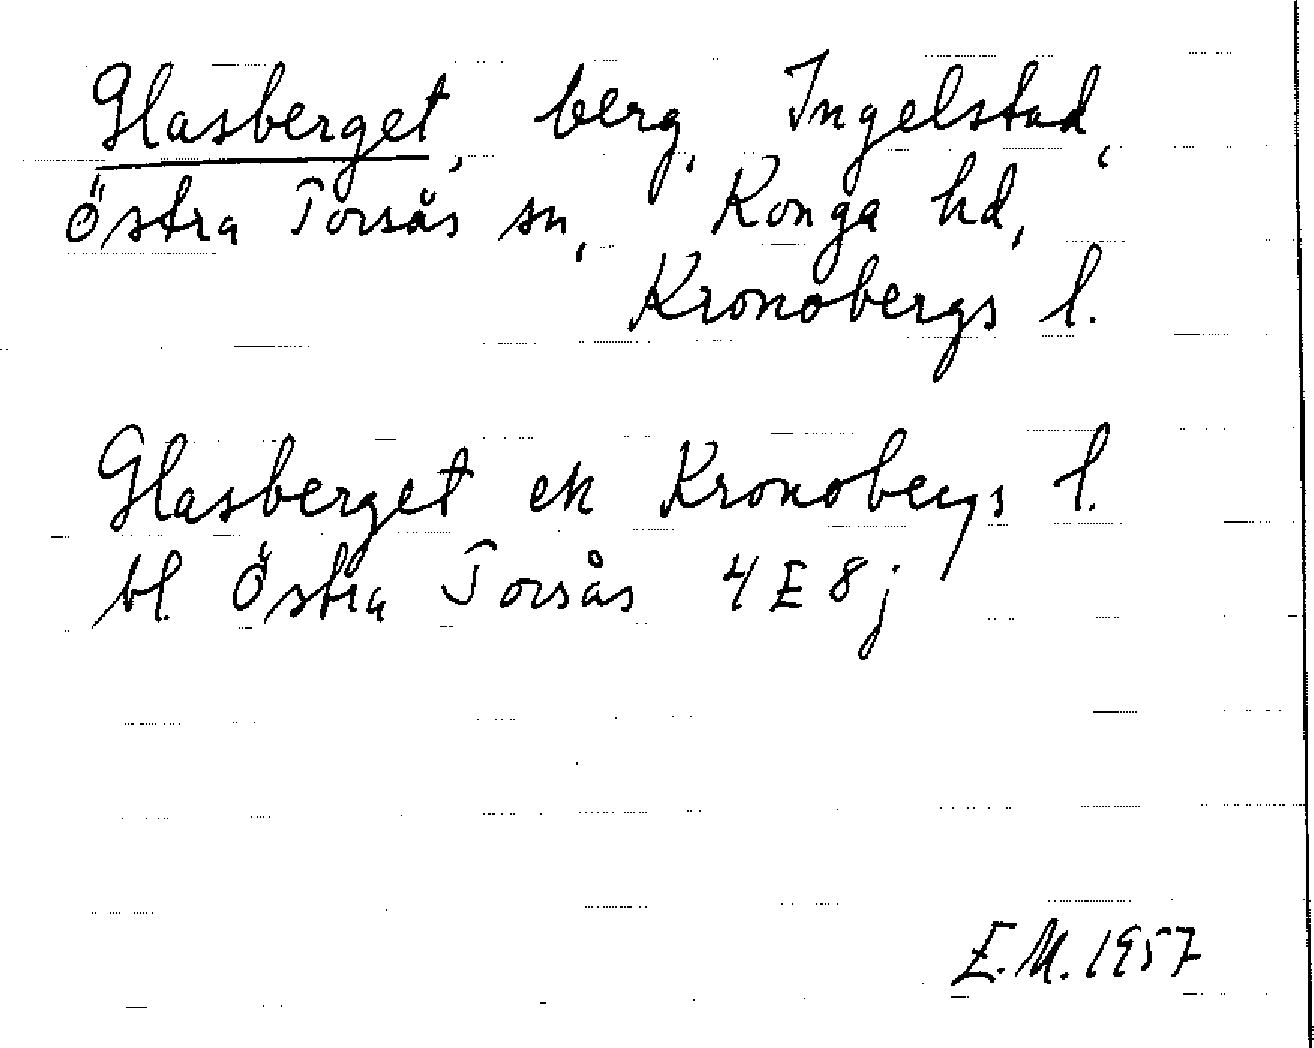 Glasberget, berg, Ingelstad,
Östra Torsås sn, Konga hd,
Kronobergs l.
Glasberget ek Kronobergs l.
bl. Östra Torsås 4E8j
E.M. 1957